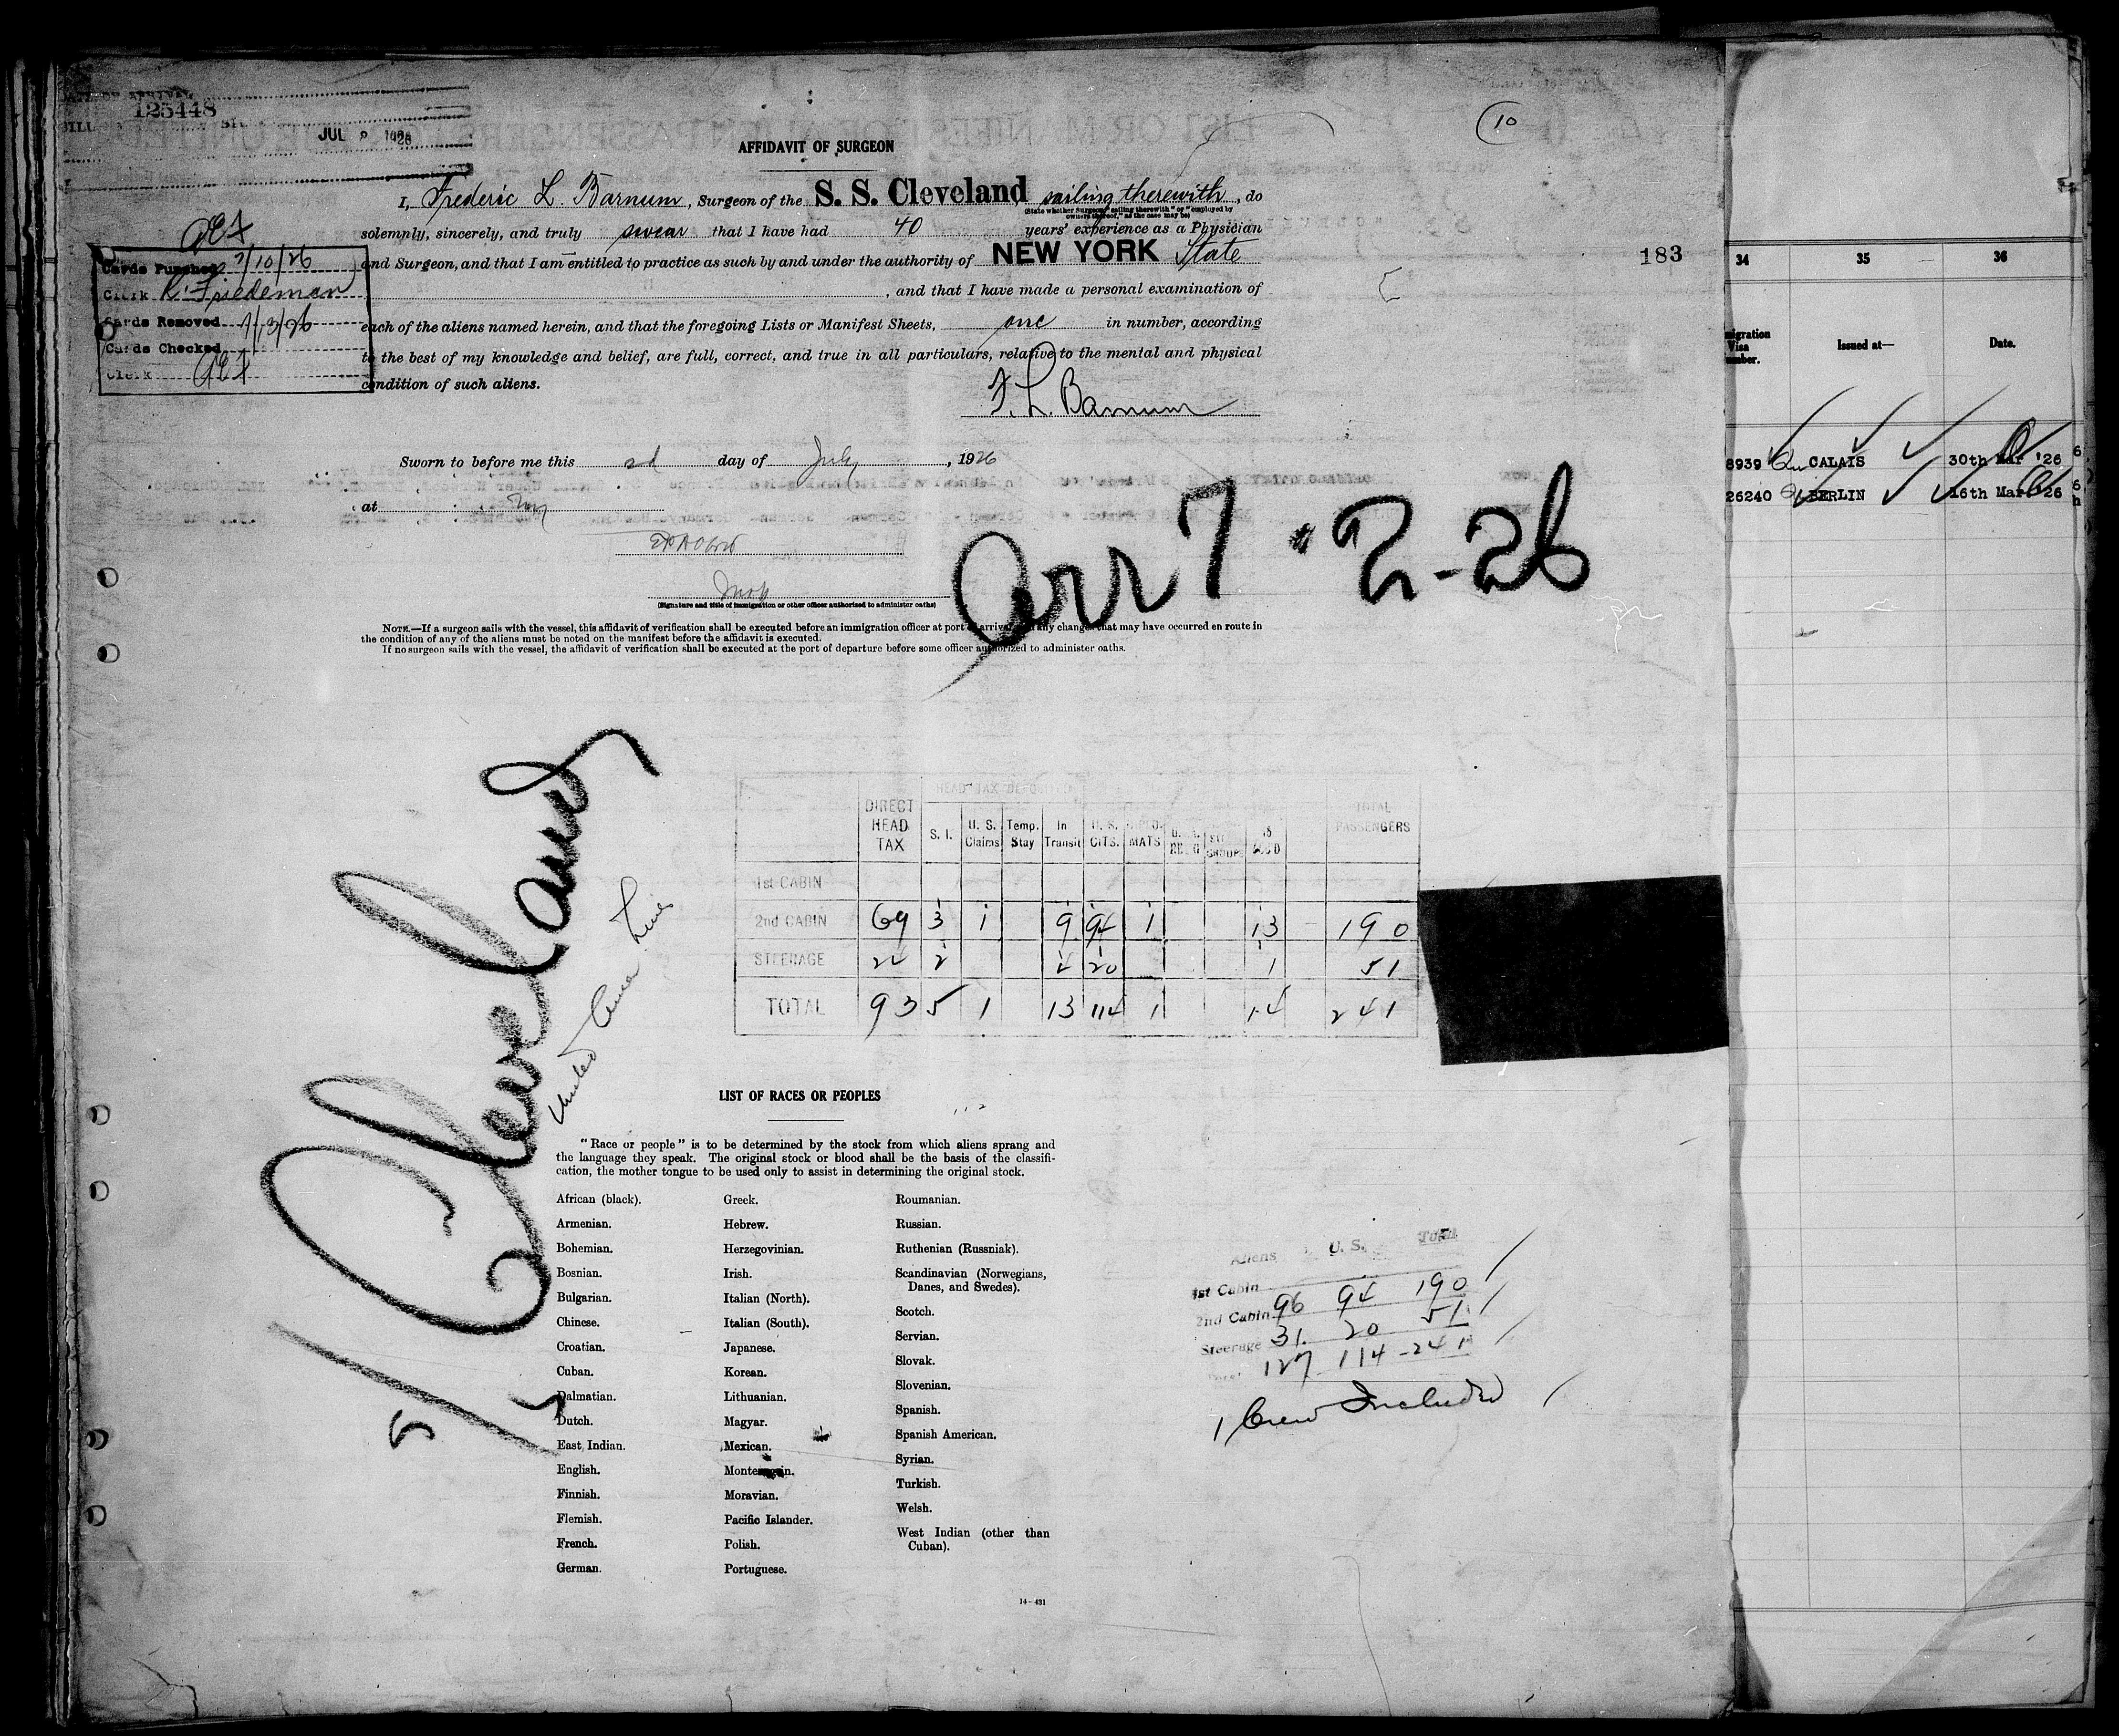 125448
JUL 2 1926
10
AFFIDAVIT OF SURGEON
I, Frederic L. Barnum, Surgeon of the S. S. Cleveland sailing therewith, do
(State whether Surgeon "sailing therewith" or "employed by
owners thereof," as the case may be)
solemnly, sincerely, and truly swear that I have had 40 years' experience as a Physician
and Surgeon, and that I am entitled to practice as such by and under the authority of NEW YORK State
, and that I have made a personal examination of
each of the aliens named herein, and that the foregoing Lists or Manifest Sheets, one in number, according
to the best of my knowledge and belief, are full, correct, and true in all particulars, relative to the mental and physical
condition of such aliens.
F. L. Barnum
Cards Punched 7/10/26
Clerk R. Friedeman
Cards Removed 7/13/26
Cards Checked
Clerk
183
Sworn to before me this 2d day of July, 1926
at
(Signature and title of immigration or other officer authorized to administer oaths)
Arr 7-2-26
NOTE.—If a surgeon sails with the vessel, this affidavit of verification shall be executed before an immigration officer at port of arrival any changes that may have occurred en route in
the condition of any of the aliens must be noted on the manifest before the affidavit is executed.
If no surgeon sails with the vessel, the affidavit of verification shall be executed at the port of departure before some officer authorized to administer oaths.
34 35 36
migration Visa number. Issued at— Date.
8939 CALAIS 30th Mar '26
26240 BERLIN 16th Mar '26
Cleveland
United Amer Lines
5/5
HEAD TAX DEPOSITED
DIRECT HEAD TAX S. I. U. S. Claims Temp. Stay In Transit U. S. CITS. DIPLOMATS TOTAL PASSENGERS
1st CABIN
2nd CABIN 69 3 1 9 94 1 13 190
STEERAGE 24 2 4 20 1 51
TOTAL 93 5 1 13 114 1 14 241
LIST OF RACES OR PEOPLES
"Race or people" is to be determined by the stock from which aliens sprang and
the language they speak. The original stock or blood shall be the basis of the classifi-
cation, the mother tongue to be used only to assist in determining the original stock.
African (black).
Armenian.
Bohemian.
Bosnian.
Bulgarian.
Chinese.
Croatian.
Cuban.
Dalmatian.
Dutch.
East Indian.
English.
Finnish.
Flemish.
French.
German.
Greek.
Hebrew.
Herzegovinian.
Irish.
Italian (North).
Italian (South).
Japanese.
Korean.
Lithuanian.
Magyar.
Mexican.
Montenegrin.
Moravian.
Pacific Islander.
Polish.
Portuguese.
Roumanian.
Russian.
Ruthenian (Russniak).
Scandinavian (Norwegians,
Danes, and Swedes).
Scotch.
Servian.
Slovak.
Slovenian.
Spanish.
Spanish American.
Syrian.
Turkish.
Welsh.
West Indian (other than
Cuban).
14—431
Aliens U. S. Total
1st Cabin
2nd Cabin 96 94 190
Steerage 31 20 51
127 114 - 241
1 Crew Included